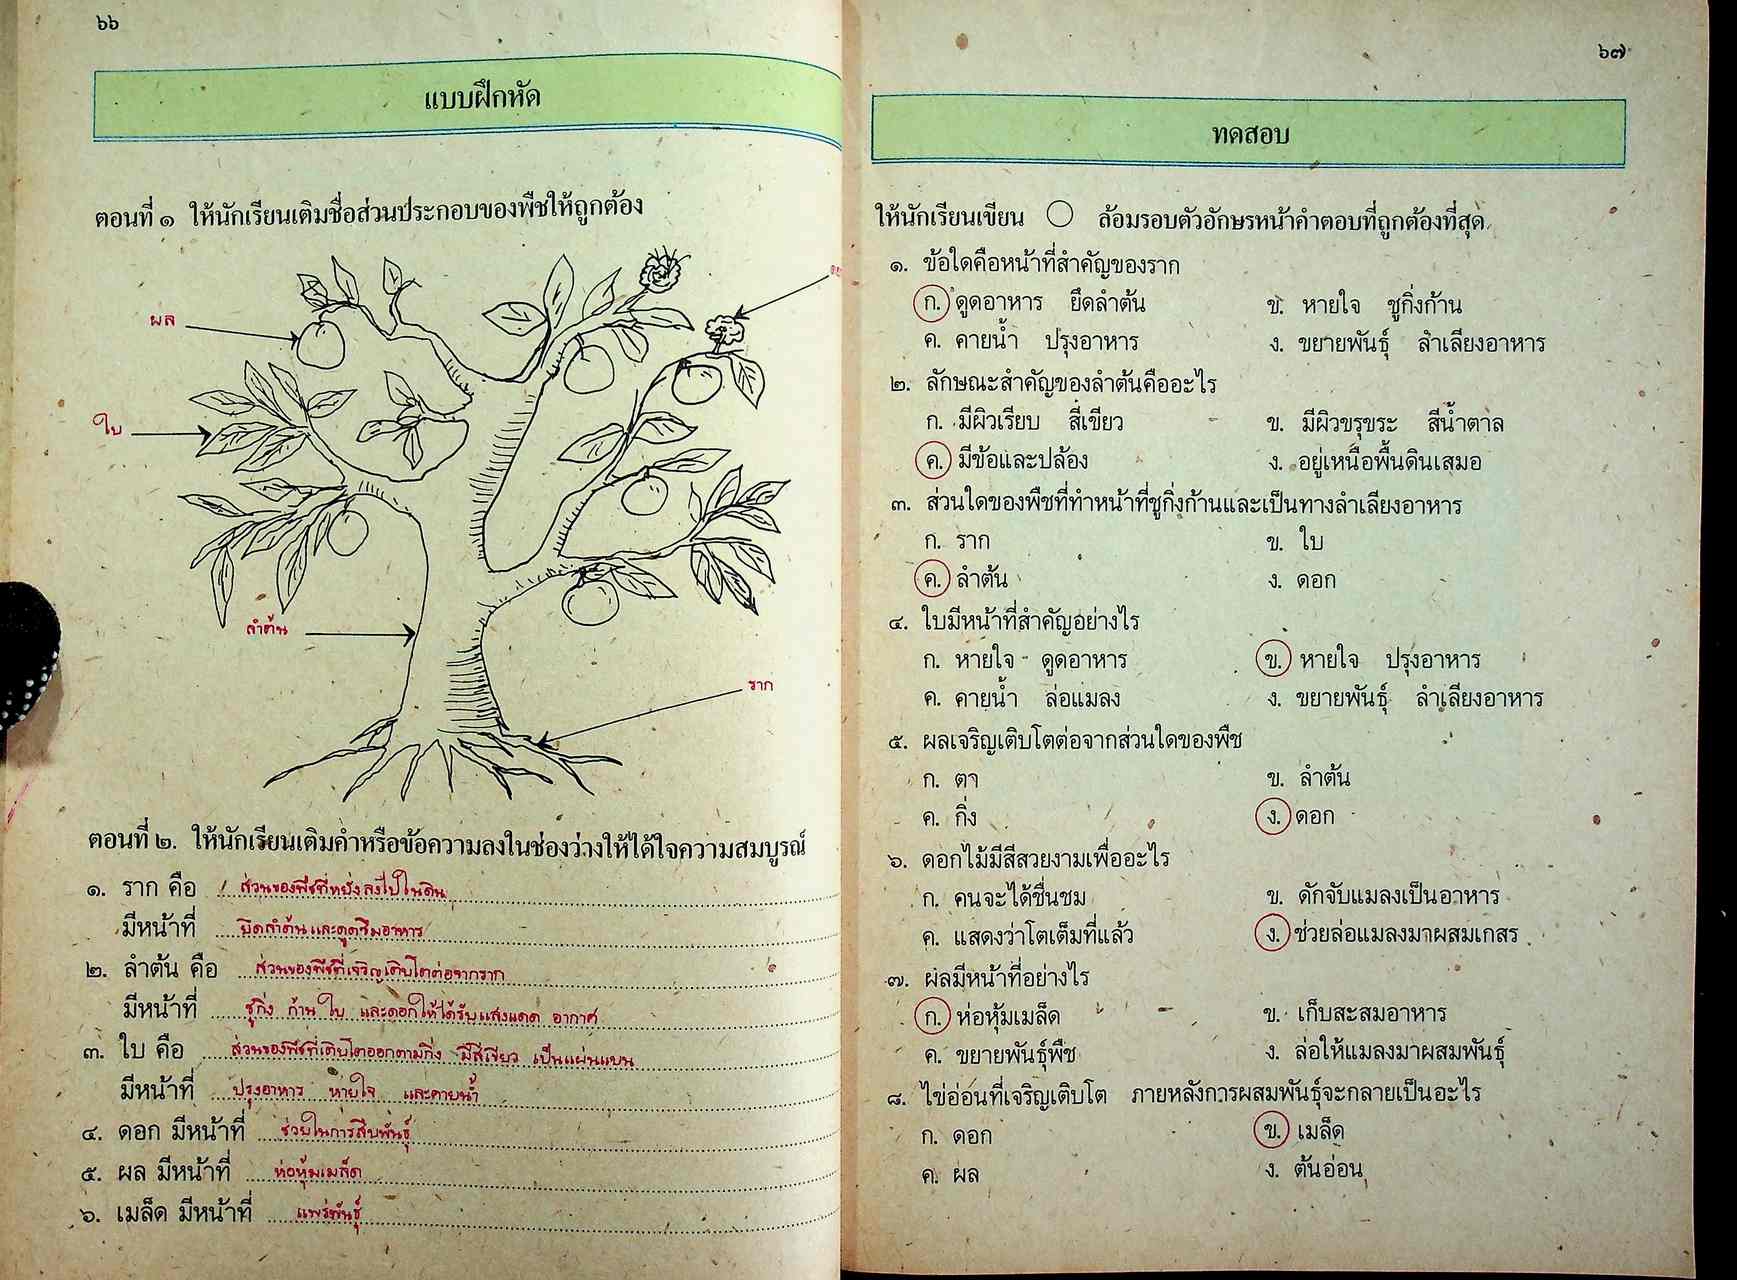 ๖๖
แบบฝึกหัด
ตอนที่ ๑ ให้นักเรียนเติมชื่อส่วนประกอบของพืชให้ถูกต้อง
ผล
ใบ
ลำต้น
ราก
ตอนที่ ๒. ให้นักเรียนเติมคำหรือข้อความลงในช่องว่างให้ได้ใจความสมบูรณ์
๑. ราก คือ ส่วนของพืชที่หยั่งลงไปในดิน
มีหน้าที่ ยึดลำต้นและดูดซึมอาหาร
๒. ลำต้น คือ ส่วนของพืชที่เจริญเติบโตต่อจากราก
มีหน้าที่ ชูกิ่ง ก้าน ใบ และดอกให้ได้รับแสงแดด อากาศ
๓. ใบ คือ ส่วนของพืชที่เติบโตออกตามกิ่ง มีสีเขียว เป็นแผ่นแบน
มีหน้าที่ ปรุงอาหาร หายใจ และคายน้ำ
๔. ดอก มีหน้าที่ ช่วยในการสืบพันธุ์
๕. ผล มีหน้าที่ ห่อหุ้มเมล็ด
๖. เมล็ด มีหน้าที่ แพร่พันธุ์
๖๗
ทดสอบ
ให้นักเรียนเขียน ○ ล้อมรอบตัวอักษรหน้าคำตอบที่ถูกต้องที่สุด
๑. ข้อใดคือหน้าที่สำคัญของราก
ก. ดูดอาหาร ยึดลำต้น ข. หายใจ ชูกิ่งก้าน
ค. คายน้ำ ปรุงอาหาร ง. ขยายพันธุ์ ลำเลียงอาหาร
๒. ลักษณะสำคัญของลำต้นคืออะไร
ก. มีผิวเรียบ สีเขียว ข. มีผิวขรุขระ สีน้ำตาล
ค. มีข้อและปล้อง ง. อยู่เหนือพื้นดินเสมอ
๓. ส่วนใดของพืชที่ทำหน้าที่ชูกิ่งก้านและเป็นทางลำเลียงอาหาร
ก. ราก ข. ใบ
ค. ลำต้น ง. ดอก
๔. ใบมีหน้าที่สำคัญอย่างไร
ก. หายใจ ดูดอาหาร ข. หายใจ ปรุงอาหาร
ค. คายน้ำ ล่อแมลง ง. ขยายพันธุ์ ลำเลียงอาหาร
๕. ผลเจริญเติบโตต่อจากส่วนใดของพืช
ก. ตา ข. ลำต้น
ค. กิ่ง ง. ดอก
๖. ดอกไม้มีสีสวยงามเพื่ออะไร
ก. คนจะได้ชื่นชม ข. ดักจับแมลงเป็นอาหาร
ค. แสดงว่าโตเต็มที่แล้ว ง. ช่วยล่อแมลงมาผสมเกสร
๗. ผลมีหน้าที่อย่างไร
ก. ห่อหุ้มเมล็ด ข. เก็บสะสมอาหาร
ค. ขยายพันธุ์พืช ง. ล่อให้แมลงมาผสมพันธุ์
๘. ไข่อ่อนที่เจริญเติบโต ภายหลังการผสมพันธุ์จะกลายเป็นอะไร
ก. ดอก ข. เมล็ด
ค. ผล ง. ต้นอ่อน